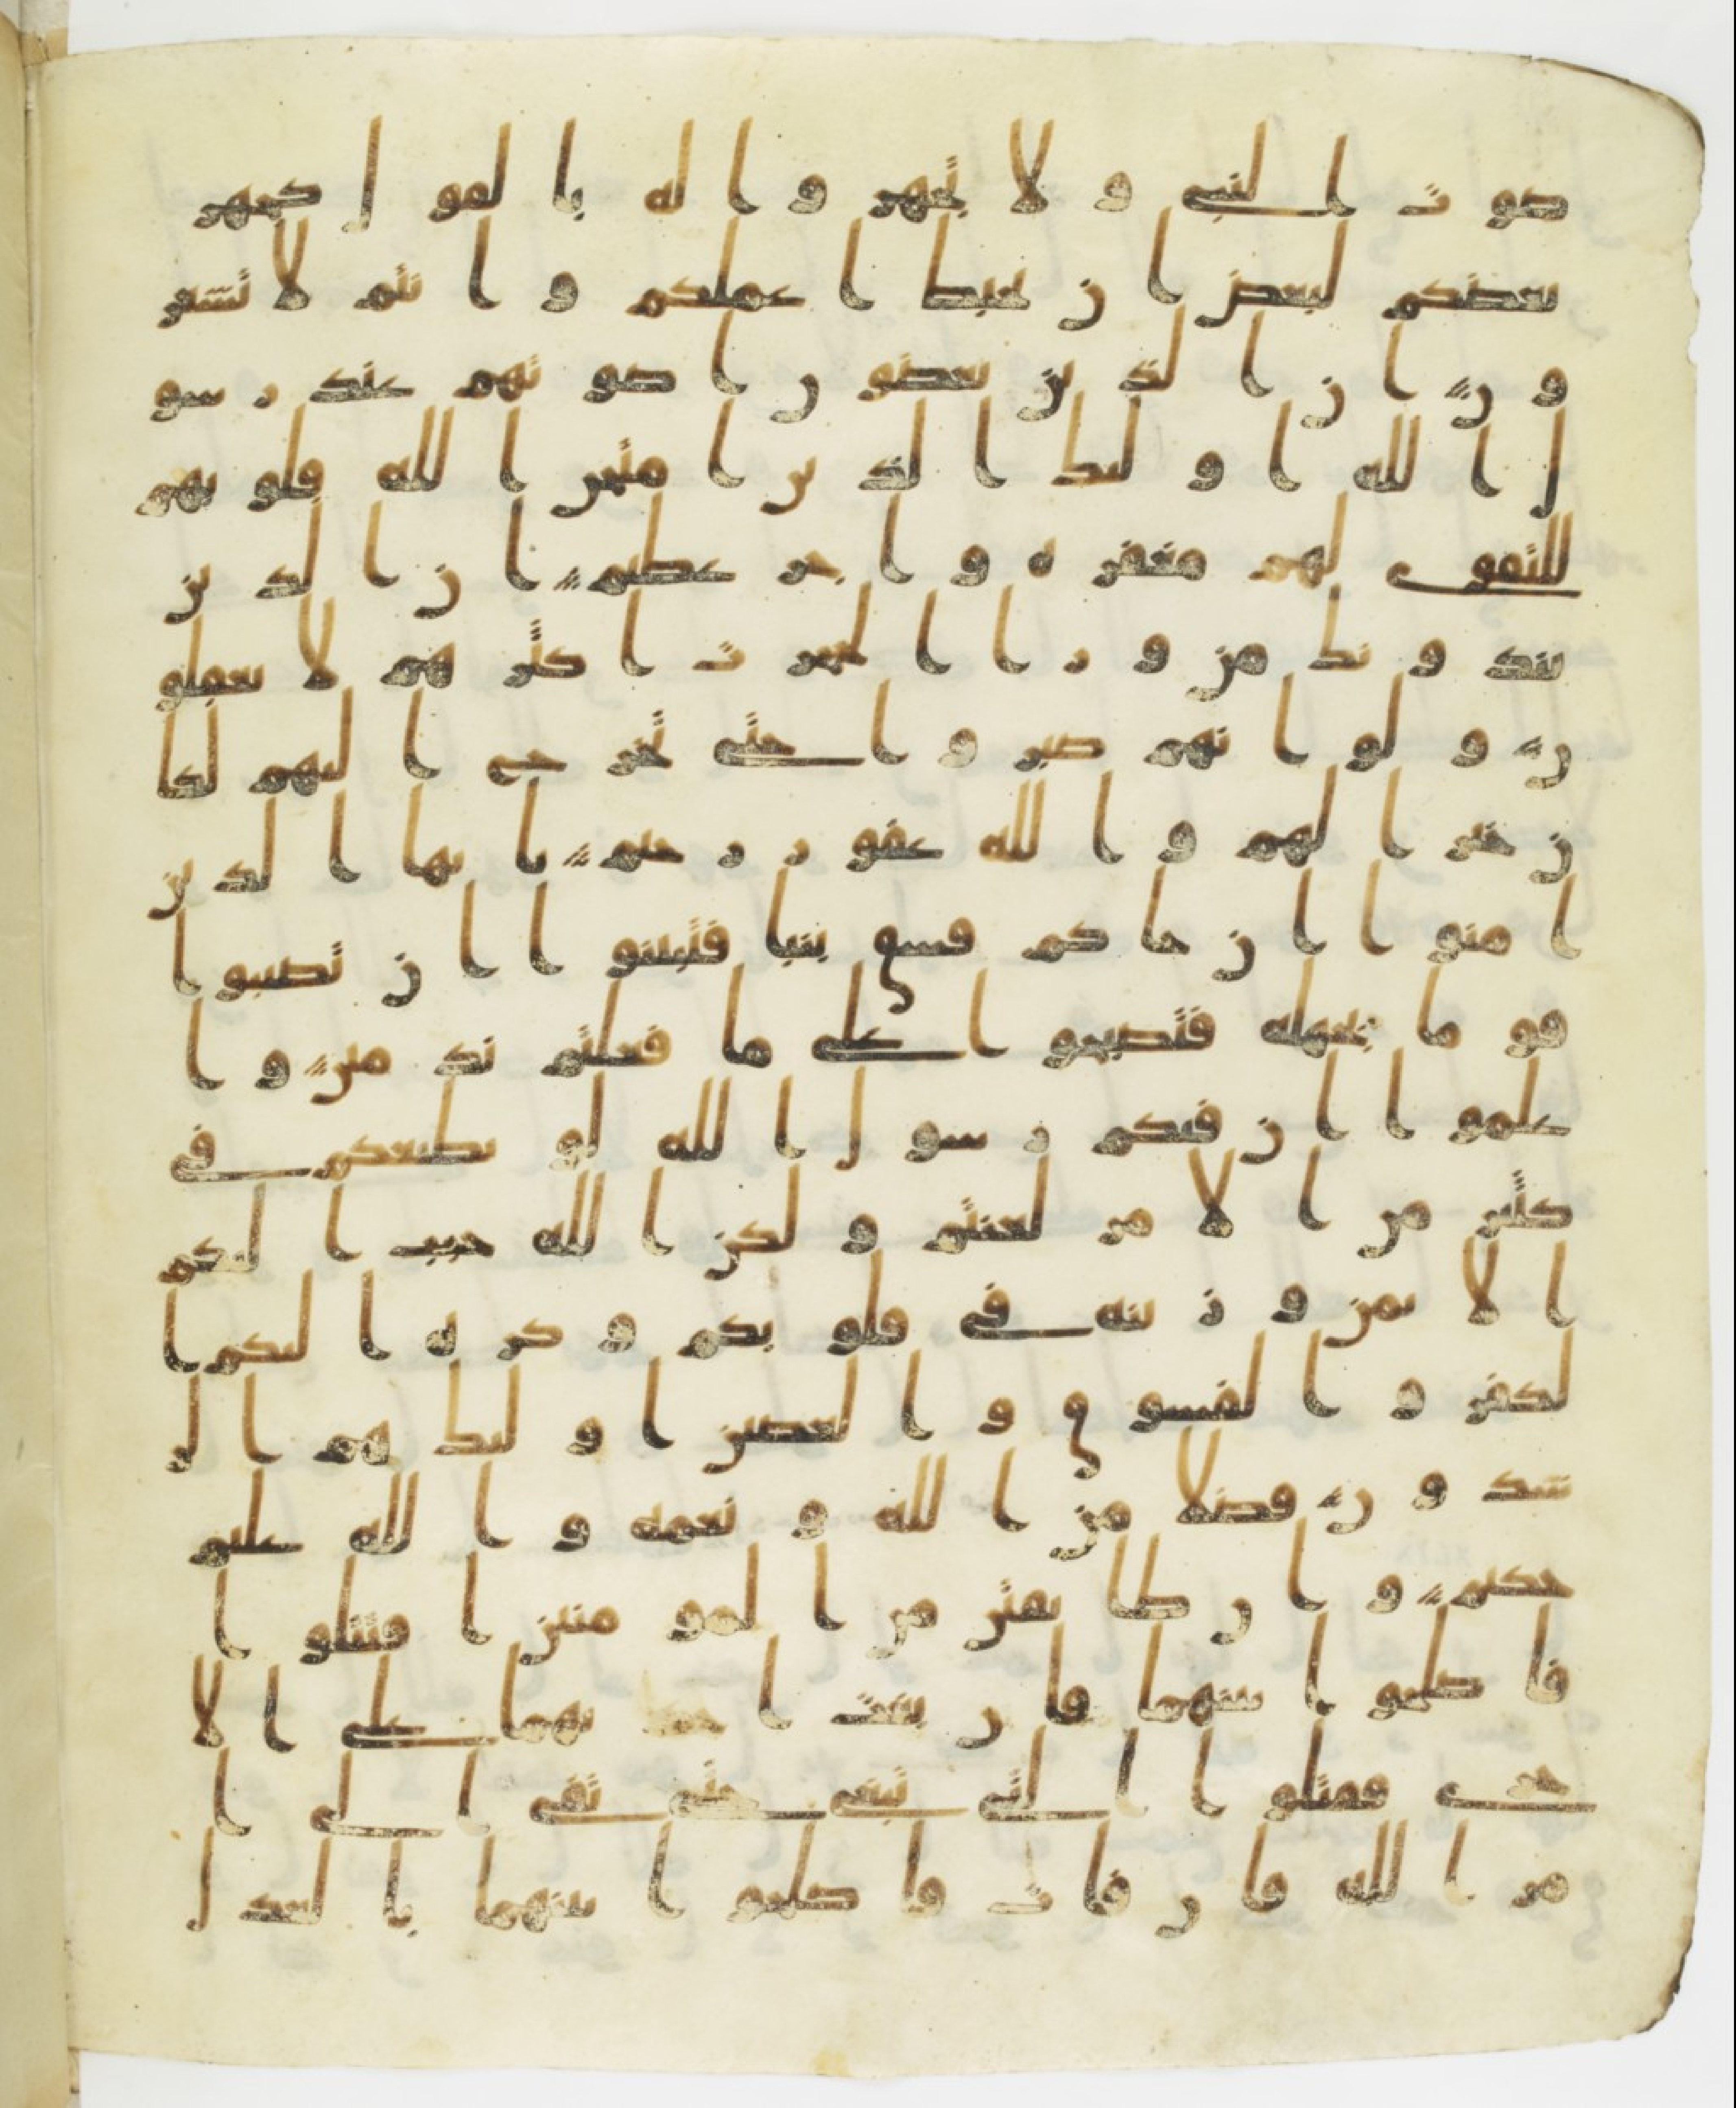 صوت النبى ولا تجهروا له بالقول كجهر
بعضكم لبعض ان تحبط اعملكم وانتم لا تشعر
ون ان الذين يغضون اصوتهم عند رسو
ل الله اوليك الذين امتحن الله قلوبهم
للتقوى لهم مغفره واجر عظيم ان الذين
يندونك من ورا الحجرت اكثرهم لا يعقلو
ن ولو انهم صبروا حتى تخرج اليهم لكا
ن خيرا لهم والله غفور رحيم يايها الذين
امنوا ان جاكم فسق بنبا فتبينوا ان تصيبوا
قوما بجهله فتصبحوا على ما فعلتم ندمين وا
علموا ان فيكم رسول الله لو يطيعكم فى
كثير من الامر لعنتم ولكن الله حبب اليكم
الايمن وزينه فى قلوبكم وكره اليكم ا
لكفر والفسوق والعصين اوليك هم الر
شدون فضلا من الله ونعمه والله عليم
حكيم وان طايفتن من المومنين اقتتلوا
فاصلحوا بينهما فان بغت احديهما على الا
خرى فقتلوا التى تبغى حتى تفى الى ا
مر الله فان فات فاصلحوا بينهما بالعدل